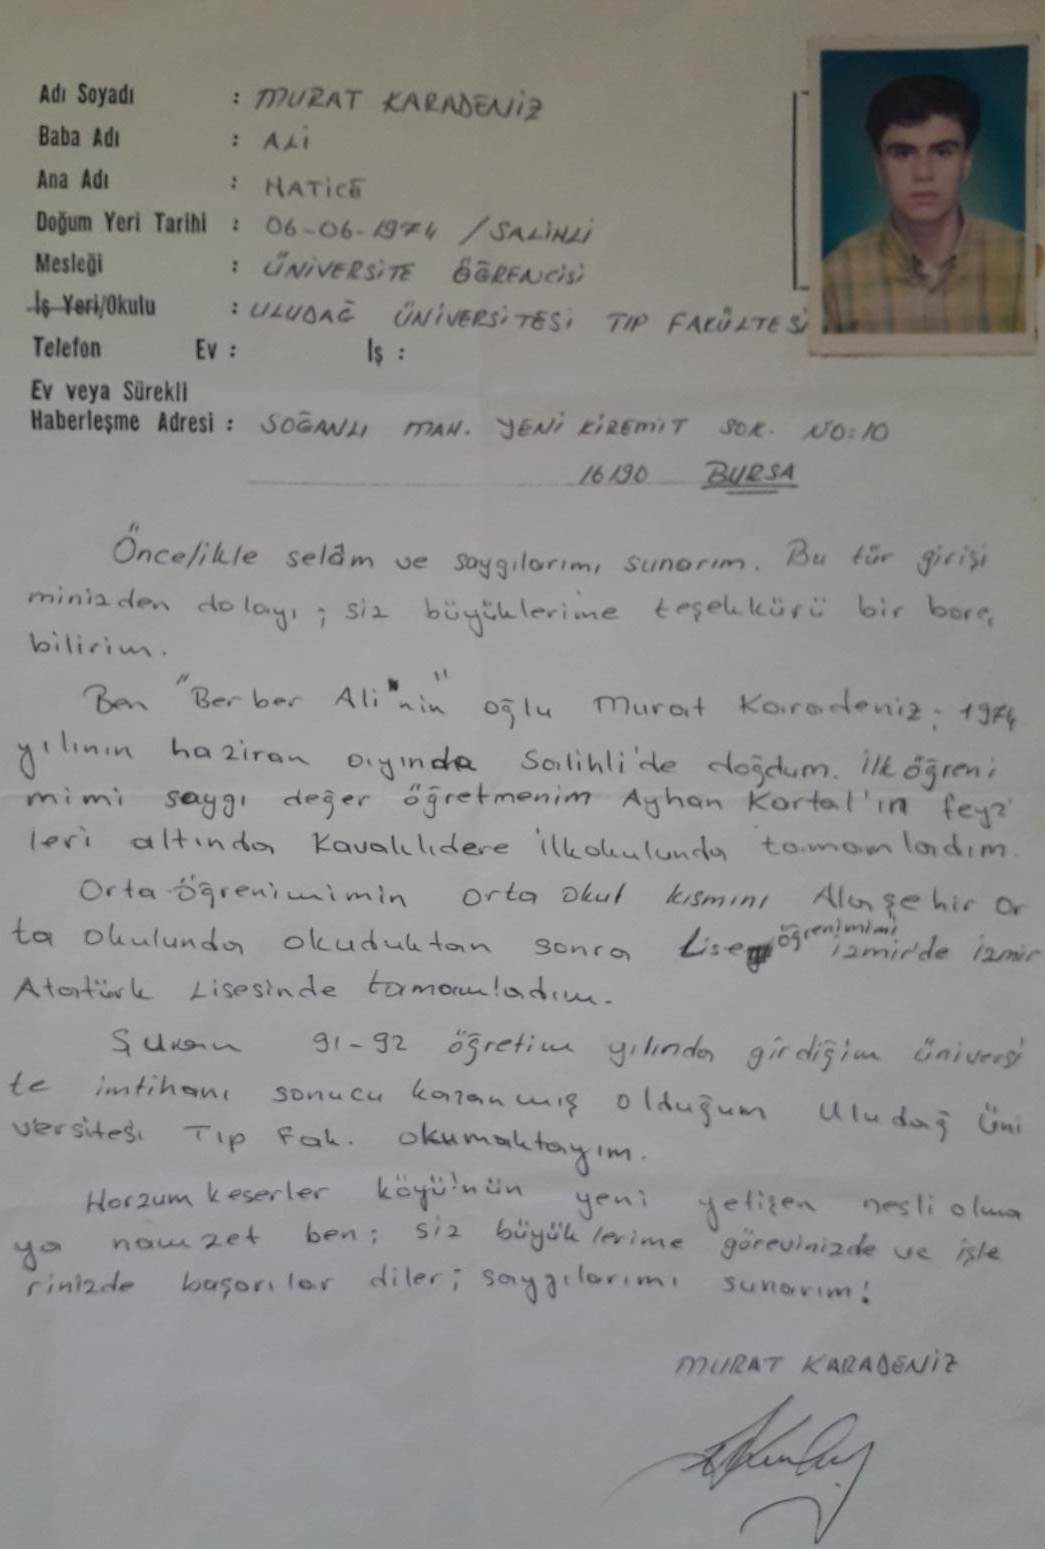 Adı Soyadı : MURAT KARADENİZ
Baba Adı : ALİ
Ana Adı : HATİCE
Doğum Yeri Tarihi : 06-06-1974 / SALİHLİ
Mesleği : ÜNİVERSİTE ÖĞRENCİSİ
İş Yeri/Okulu : ULUDAĞ ÜNİVERSİTESİ TIP FAKÜLTESİ
Telefon Ev : İş :
Ev veya Sürekli
Haberleşme Adresi : SOĞANLI MAH. YENİ KİREMİT SOK. NO:10
16190 BURSA
Öncelikle selâm ve saygılarımı sunarım. Bu tür girişi
minizden dolayı ; siz büyüklerime teşekkürü bir borç
bilirim.
Ben "Berber Ali'nin" oğlu Murat Karadeniz ; 1974
yılının haziran ayında Salihli'de doğdum. İlk öğreni
mimi saygı değer öğretmenim Ayhan Kartal'ın feyz
leri altında Kavaklıdere ilkokulunda tamamladım.
Orta öğrenimimin orta okul kısmını Alaşehir or
ta okulunda okuduktan sonra Lise öğrenimimi izmir'de izmir
Atatürk Lisesinde tamamladım.
Şuan 91-92 öğretim yılında girdiğim üniversi
te imtihanı sonucu kazanmış olduğum Uludağ Üni
versitesi Tıp Fak. okumaktayım.
Horzum keserler köyü'nün yeni yetişen nesli olma
ya namzet ben ; siz büyüklerime görevinizde ve işle
rinizde başarılar diler ; saygılarımı sunarım !
MURAT KARADENİZ